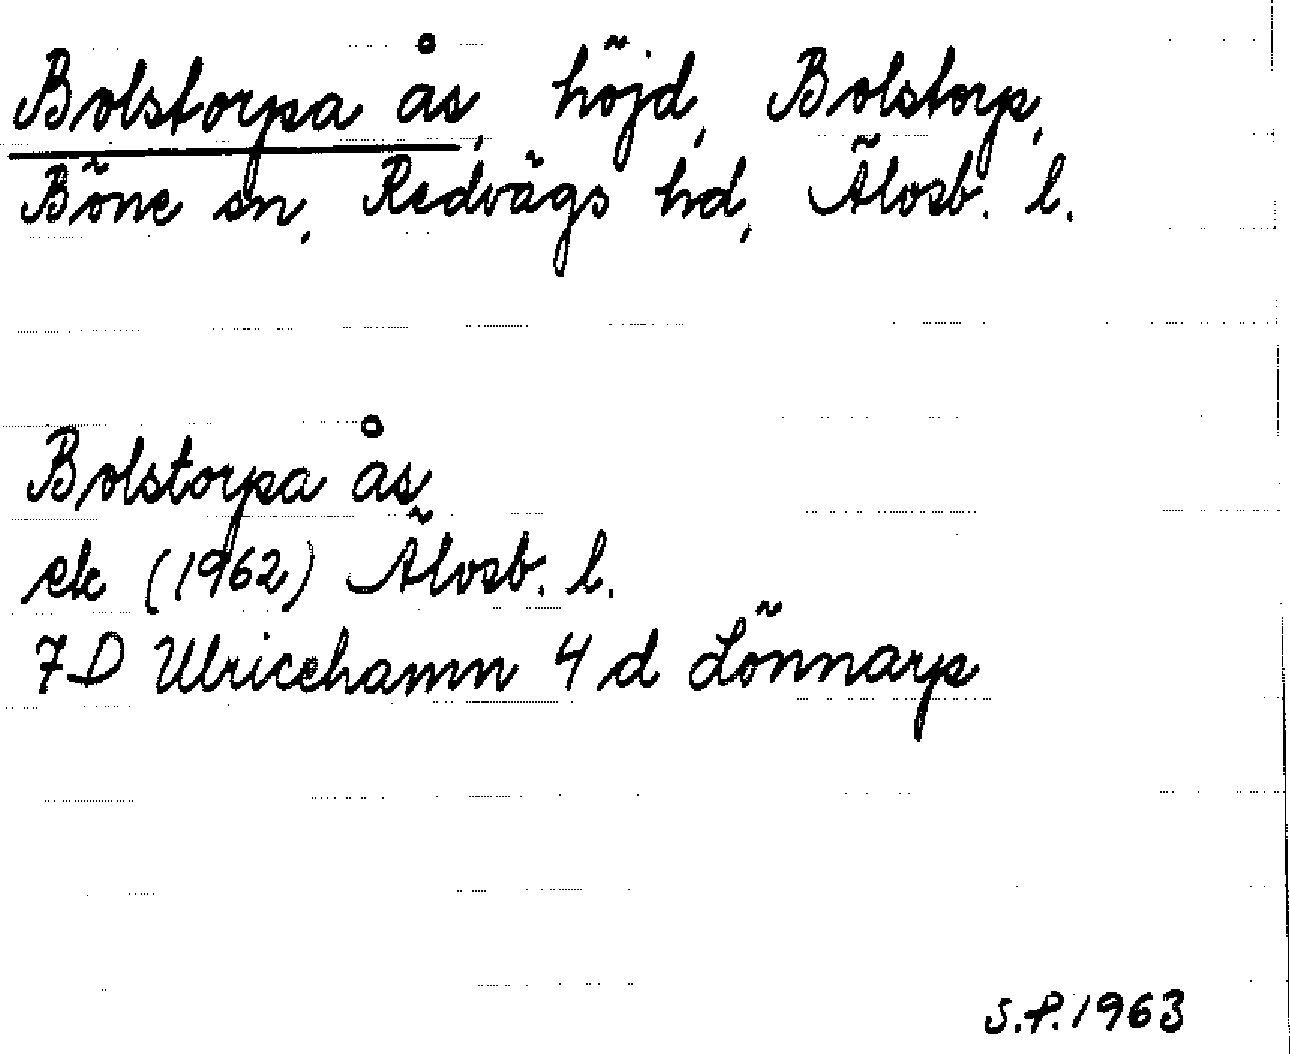 Bolstorpa ås, höjd, Bolstorp,
Böne sn, Redvägs hd, Älvsb. l.
Bolstorpa ås
ek (1962) Älvsb. l.
7D Ulricehamn 4 d Lönnarp
S.P. 1963